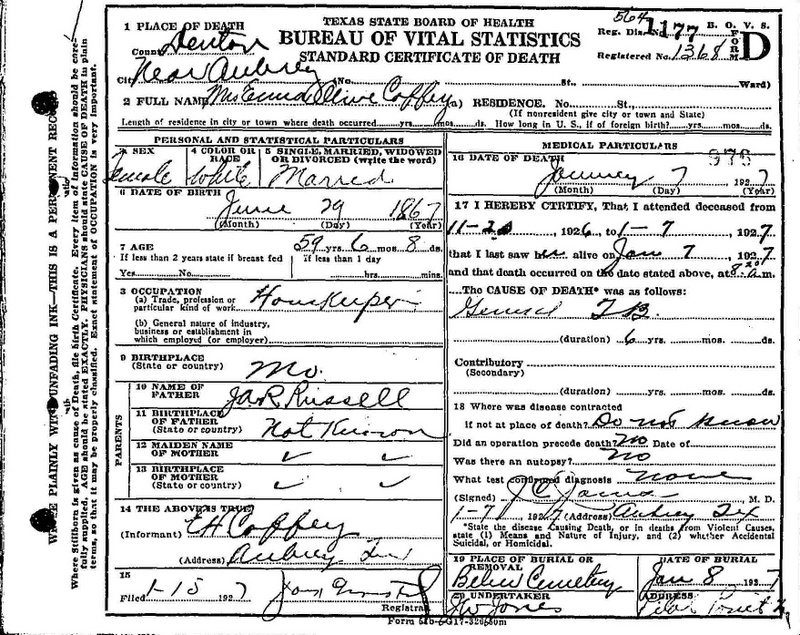 TEXAS STATE BOARD OF HEALTH
BUREAU OF VITAL STATISTICS
STANDARD CERTIFICATE OF DEATH
564
Reg. Dis. No. 1177 B. O. V. S.
Registered No. 1368 FORM D
1 PLACE OF DEATH
County Denton
City Near Aubrey (No. St., Ward)
2 FULL NAME Mrs Olive Coffey (a) RESIDENCE. No. St.,
(If nonresident give city or town and State)
Length of residence in city or town where death occurred yrs. mos. ds. How long in U. S., if of foreign birth? yrs. mos. ds.
PERSONAL AND STATISTICAL PARTICULARS
3 SEX 4 COLOR OR RACE 5 SINGLE, MARRIED, WIDOWED OR DIVORCED (write the word)
Female White Married
6 DATE OF BIRTH
June 29 1867
(Month) (Day) (Year)
7 AGE 59 yrs 6 mos. 8 ds.
If less than 2 years state if breast fed If less than 1 day
Yes No hrs. mins.
8 OCCUPATION
(a) Trade, profession or particular kind of work House Keeper
(b) General nature of industry, business or establishment in which employed (or employer)
9 BIRTHPLACE
(State or country) Mo.
PARENTS
10 NAME OF FATHER Russell
11 BIRTHPLACE OF FATHER
(State or country) Not Known
12 MAIDEN NAME OF MOTHER ✓ ✓
13 BIRTHPLACE OF MOTHER
(State or country) ✓ ✓
14 THE ABOVE IS TRUE
(Informant) E H Coffey
(Address) Aubrey Tex
15
Filed 1-15 1927
Registrar
MEDICAL PARTICULARS
976
16 DATE OF DEATH
January 7 1927
(Month) (Day) (Year)
17 I HEREBY CTRTIFY, That I attended deceased from
1926, to 1-7, 1927
that I last saw her alive on Jan 7 1927
and that death occurred on the date stated above, at 8:20 a.m.
The CAUSE OF DEATH* was as follows:
General T B.
(duration) 6 yrs. mos. ds.
Contributory
(Secondary)
(duration) yrs. mos. ds.
18 Where was disease contracted
if not at place of death? Do not know
Did an operation precede death? No Date of
Was there an autopsy? No
What test confirmed diagnosis none
(Signed) M. D.
1-7 1927 (Address) Aubrey Tex
*State the disease Causing Death, or in deaths from Violent Causes, state (1) Means and Nature of Injury, and (2) whether Accidental Suicidal, or Homicidal.
19 PLACE OF BURIAL OR REMOVAL DATE OF BURIAL
Belew Cemetery Jan 8 1927
20 UNDERTAKER ADDRESS
J W Jones Pilot Point
WRITE PLAINLY WITH UNFADING INK—THIS IS A PERMANENT RECORD
Where Stillborn is given as cause of Death, file birth Certificate. Every item of information should be carefully supplied. AGE should be stated EXACTLY. PHYSICIANS should state CAUSE OF DEATH to plain terms, so that it may be properly classified. Exact statement of OCCUPATION is very important.